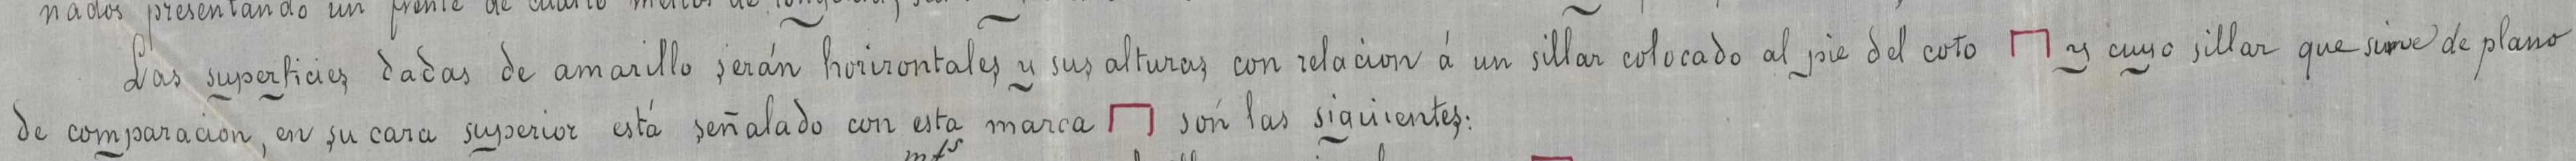 nados presentando un frente de cuatro metros de longitud,
Las superficies dadas de amarillo serán horizontales y sus alturas con relacion á un sillar colocado al pie del coto ⊓ y cuyo sillar que sirve de plano
de comparacion, en su cara superior está señalado con esta marca ⊓ són las siguientes:
mts